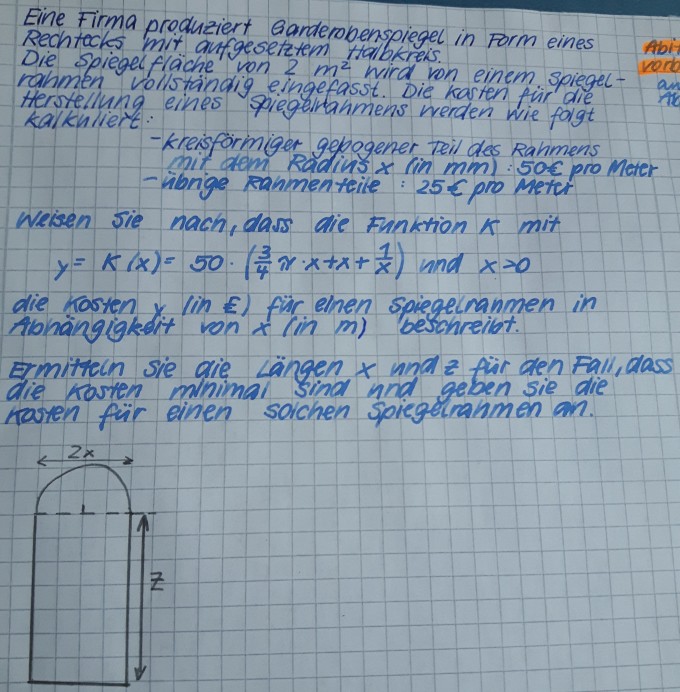 Eine Firma produziert Garderobenspiegel in Form eines
Rechtecks mit aufgesetztem Halbkreis.
Die Spiegelfläche von 2 m² wird von einem Spiegel-
rahmen vollständig eingefasst. Die Kosten für die
Herstellung eines Spiegelrahmens werden wie folgt
kalkuliert:
- kreisförmiger gebogener Teil des Rahmens
mit dem Radius x (in mm) : 50€ pro Meter
- übrige Rahmenteile : 25€ pro Meter
Abi
vorb
an
Ab
Weisen Sie nach, dass die Funktion K mit
y = K(x) = 50 · (3/4 π · x + x + 1/x) und x>0
die Kosten y (in €) für einen Spiegelrahmen in
Abhängigkeit von x (in m) beschreibt.
Ermitteln Sie die Längen x und z für den Fall, dass
die Kosten minimal sind und geben Sie die
Kosten für einen solchen Spiegelrahmen an.
2x
z